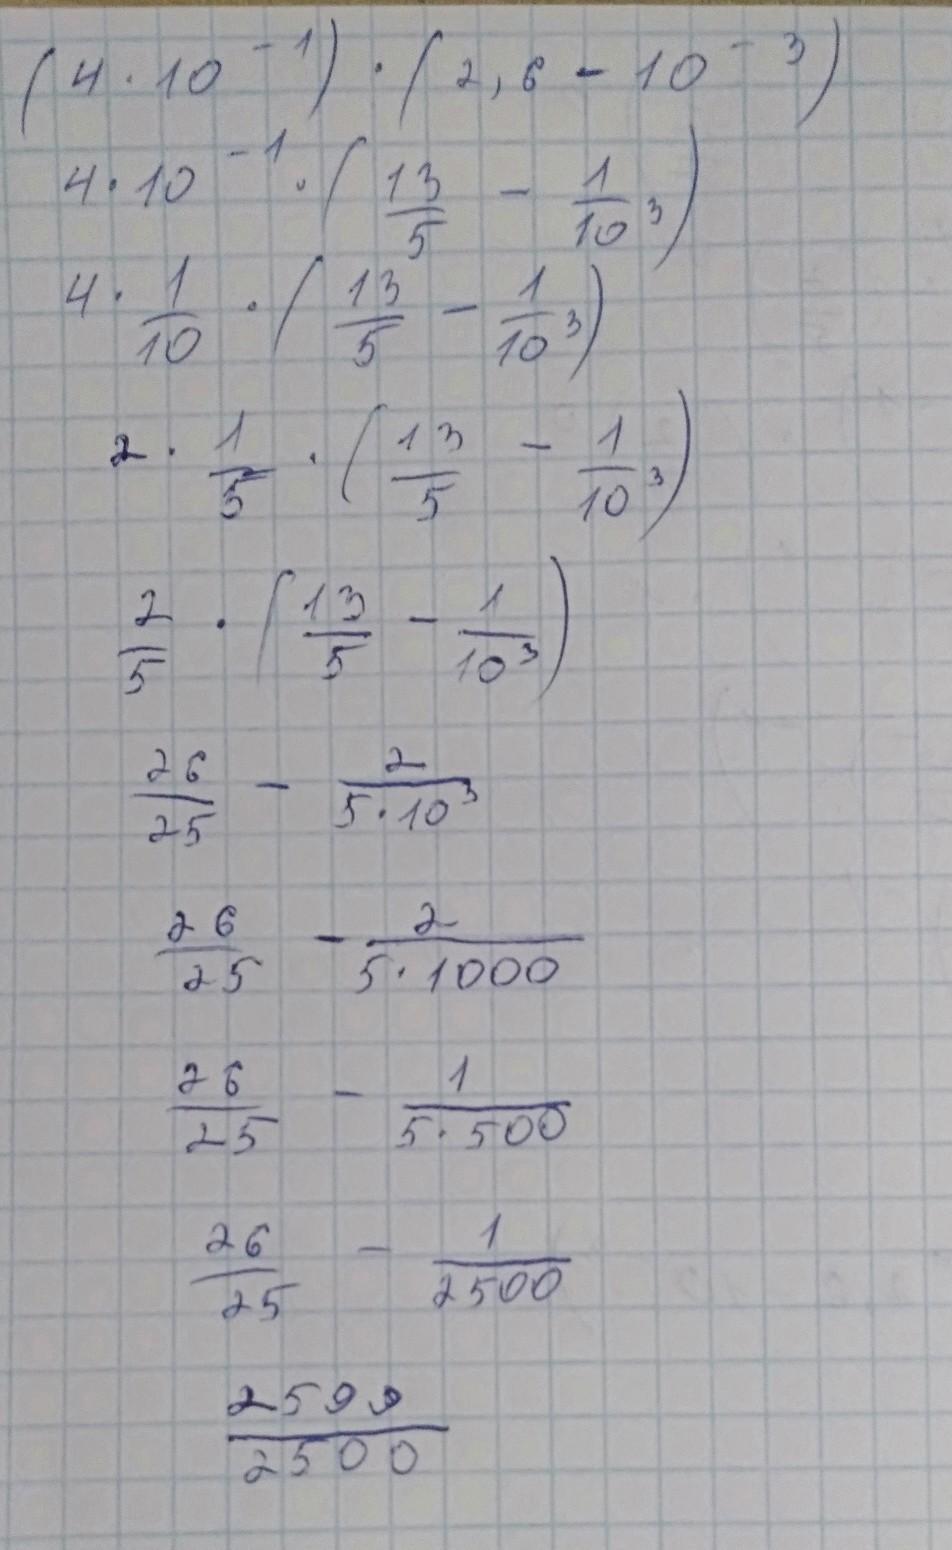 (4 · 10⁻¹) · (2,6 - 10⁻³)
4 · 10⁻¹ · (13/5 - 1/10³)
4 · 1/10 · (13/5 - 1/10³)
2 · 1/5 · (13/5 - 1/10³)
2/5 · (13/5 - 1/10³)
26/25 - 2/(5 · 10³)
26/25 - 2/(5 · 1000)
26/25 - 1/(5 · 500)
26/25 - 1/2500
2599/2500